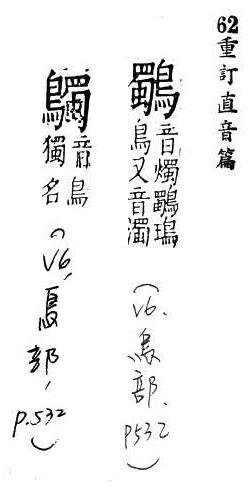 62重訂直音篇
鸀 音燭鸀瑦鳥又音濁
(V6. 鳥部. P532)
音獨鳥名
(V6, 鳥部, P.532)